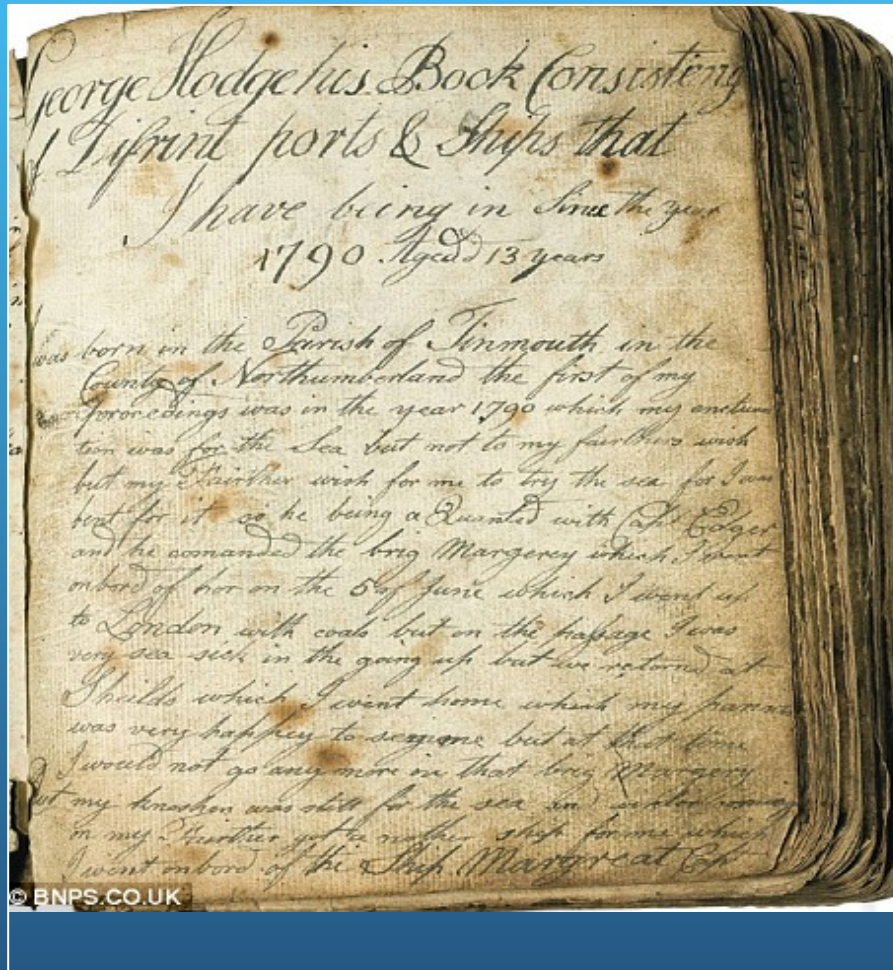 George Hodge his Book Consisting
of Difrint ports & Ships that
I have being in Since the year
1790 Aged 13 years
was born in the Parish of Tinmouth in the
County of Northumberland the first of my
proceedings was in the year 1790 which my
tion was for the Sea but not to my fairthers wish
but my Fairther wish for me to try the sea for I was
bent for it so he being a Quanted with Capt Edger
and he comanded the brig Margerey which I went
onbord of hor on the 5 of June which I went up
to London with coals but on the passage I was
very sea sick in the going up but we returned at
Sheilds which I went home which my
was very happey to me but at that time
I would not go any more in that brig Margery
But my was still for the sea
on my Fairther got a nother ship for me which
I went onbord of the Ship Margreat Capt
© BNPS.CO.UK